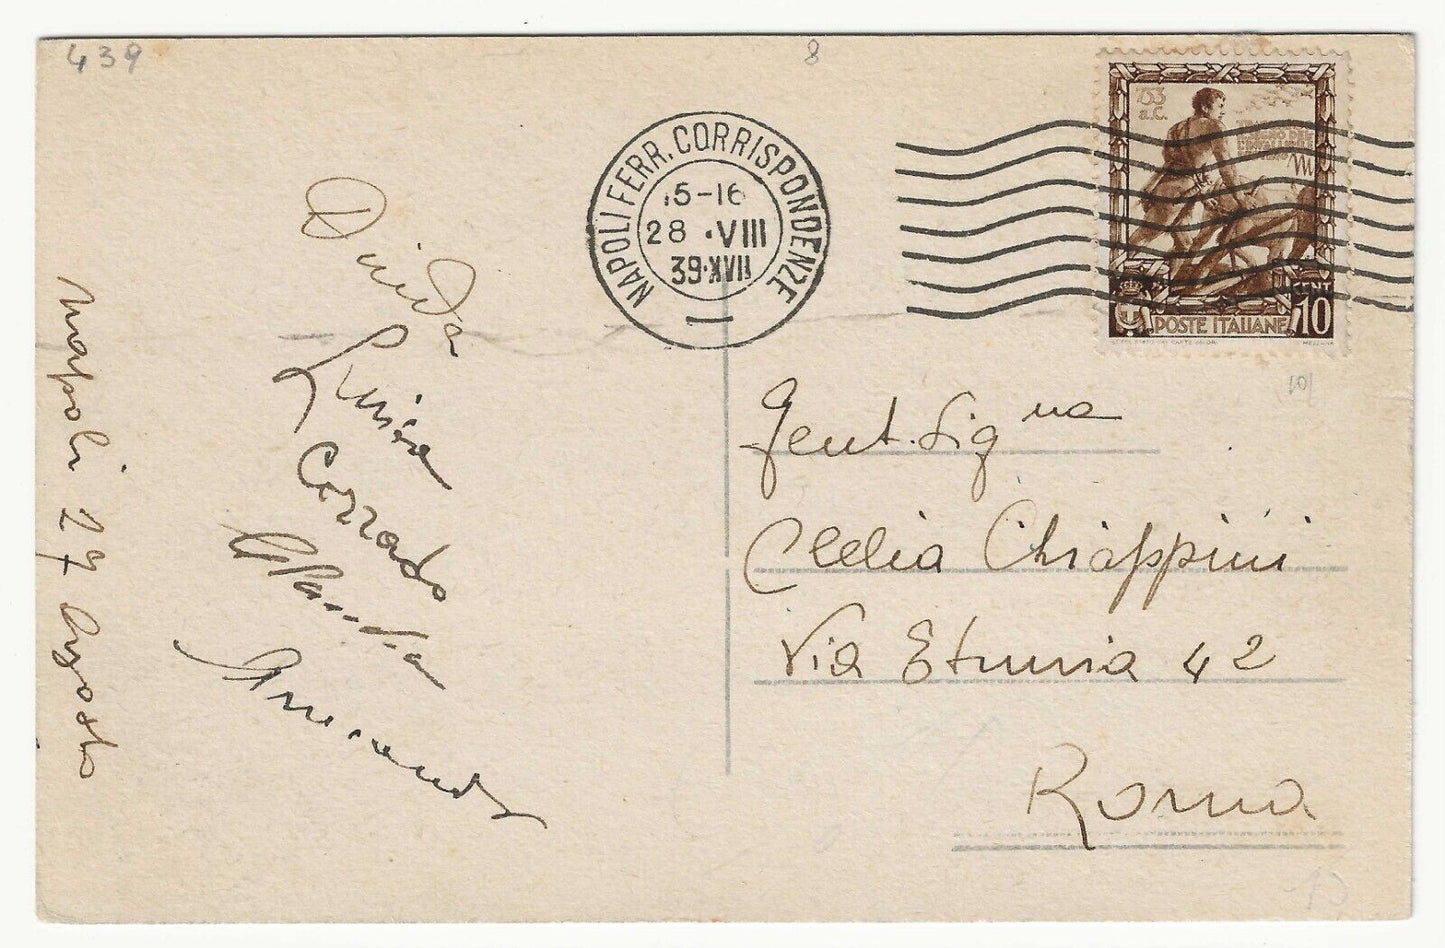 439
8
NAPOLI FERR. CORRISPONDENZE
15-16
28 · VIII
39·XVII
753
a.C.
CENT
10
POSTE ITALIANE
101
Gent. Sigⁿᵃ
Clelia Chiappini
Via Etruria 42
Roma
Luisa
Corrado
Armando
Napoli 27 Agosto